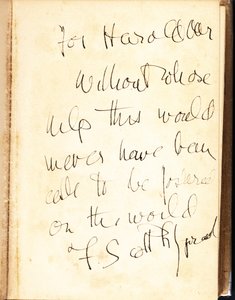 For Harold Ober
Without whose
help this would
never have been
able to be
on the world
F Scott Fitzgerald